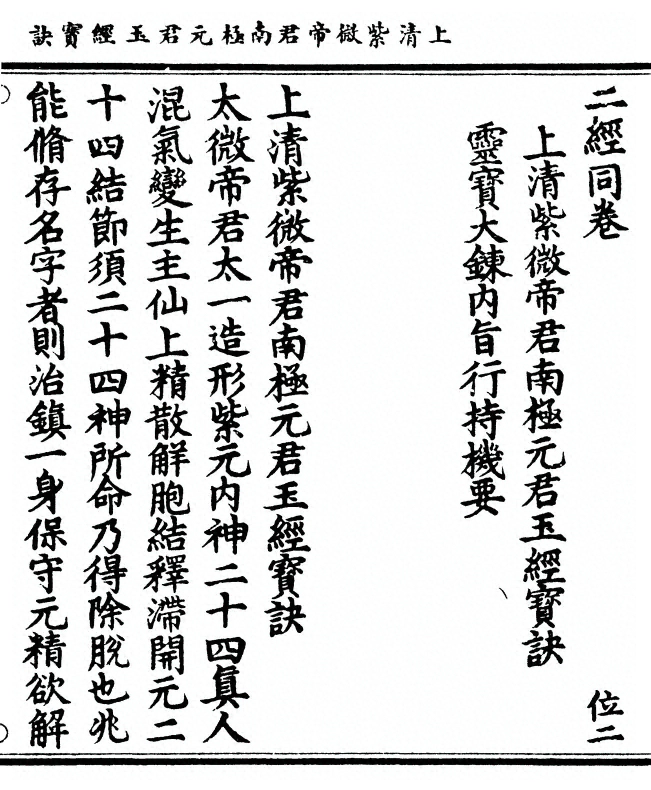 上清紫微帝君南極元君玉經寳訣
二經同卷
位二
上清紫微帝君南極元君玉經寳訣
靈寳大鍊内旨行持機要
上清紫微帝君南極元君玉經寳訣
太微帝君太一造形紫元内神二十四真人
混氣變生主仙上精散解胞結釋滯開元二
十四結節須二十四神所命乃得除脱也兆
能脩存名字者則治鎮一身保守元精欲解